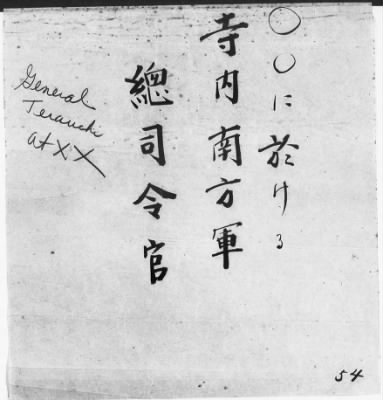 〇〇に於ける
寺内南方軍
總司令官
General
Terauchi
at XX
54